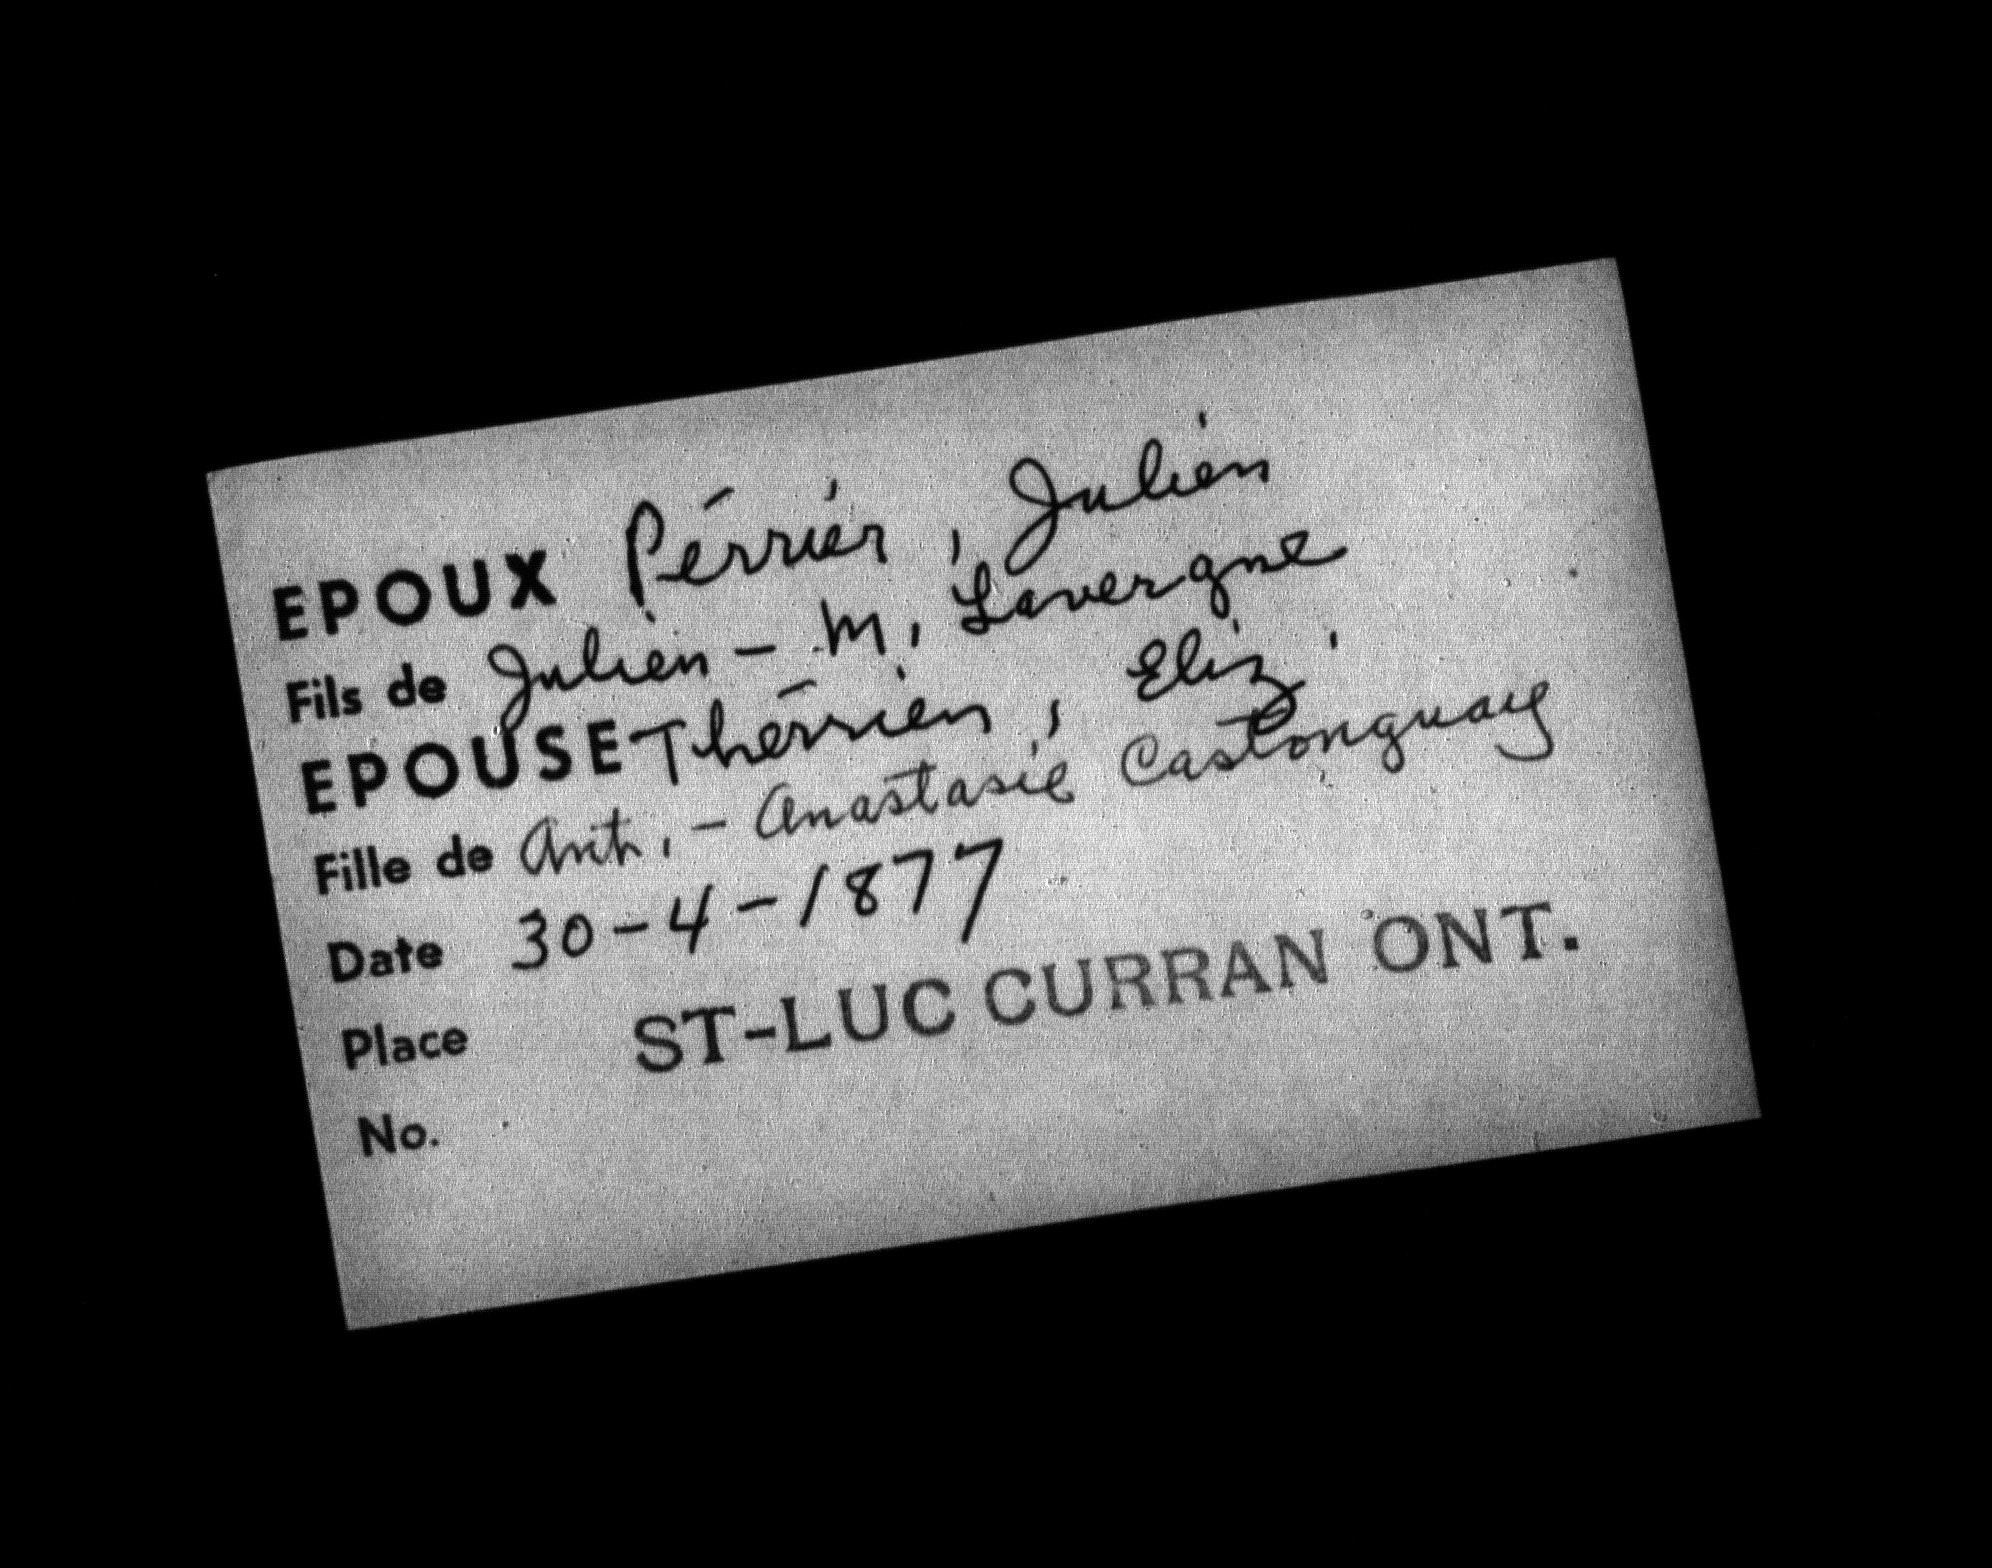 EPOUX Périer, Julien
Fils de Julien - M. Lavergne
EPOUSE Thérrien, Eliz.
Fille de Ant. - Anastasie Castonguay
Date 30-4-1877
Place ST-LUC CURRAN ONT.
No.